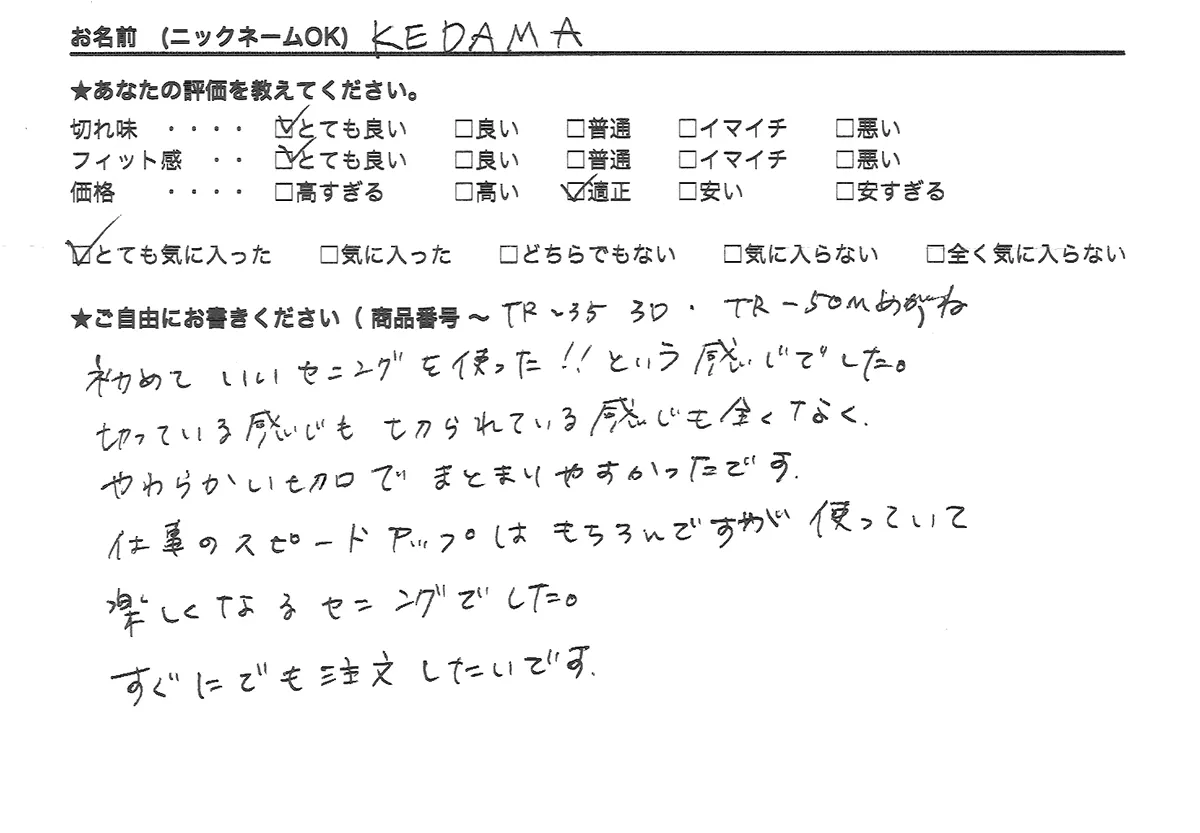 お名前 (ニックネームOK) KEDAMA
★あなたの評価を教えてください。
切れ味 ・・・・ ☑とても良い □良い □普通 □イマイチ □悪い
フィット感 ・・ ☑とても良い □良い □普通 □イマイチ □悪い
価格 ・・・・ □高すぎる □高い ☑適正 □安い □安すぎる
☑とても気に入った □気に入った □どちらでもない □気に入らない □全く気に入らない
★ご自由にお書きください ( 商品番号 ～ TR-35 3D ・ TR-50Mめがね
初めて いいセニングを使った!!という感じでした。
切っている感じも 切られている感じも全くなく.
やわらかい切口で まとまりやすかったです.
仕事のスピードアップはもちろんですが 使っていて
楽しくなるセニングでした。
すぐにでも注文したいです.